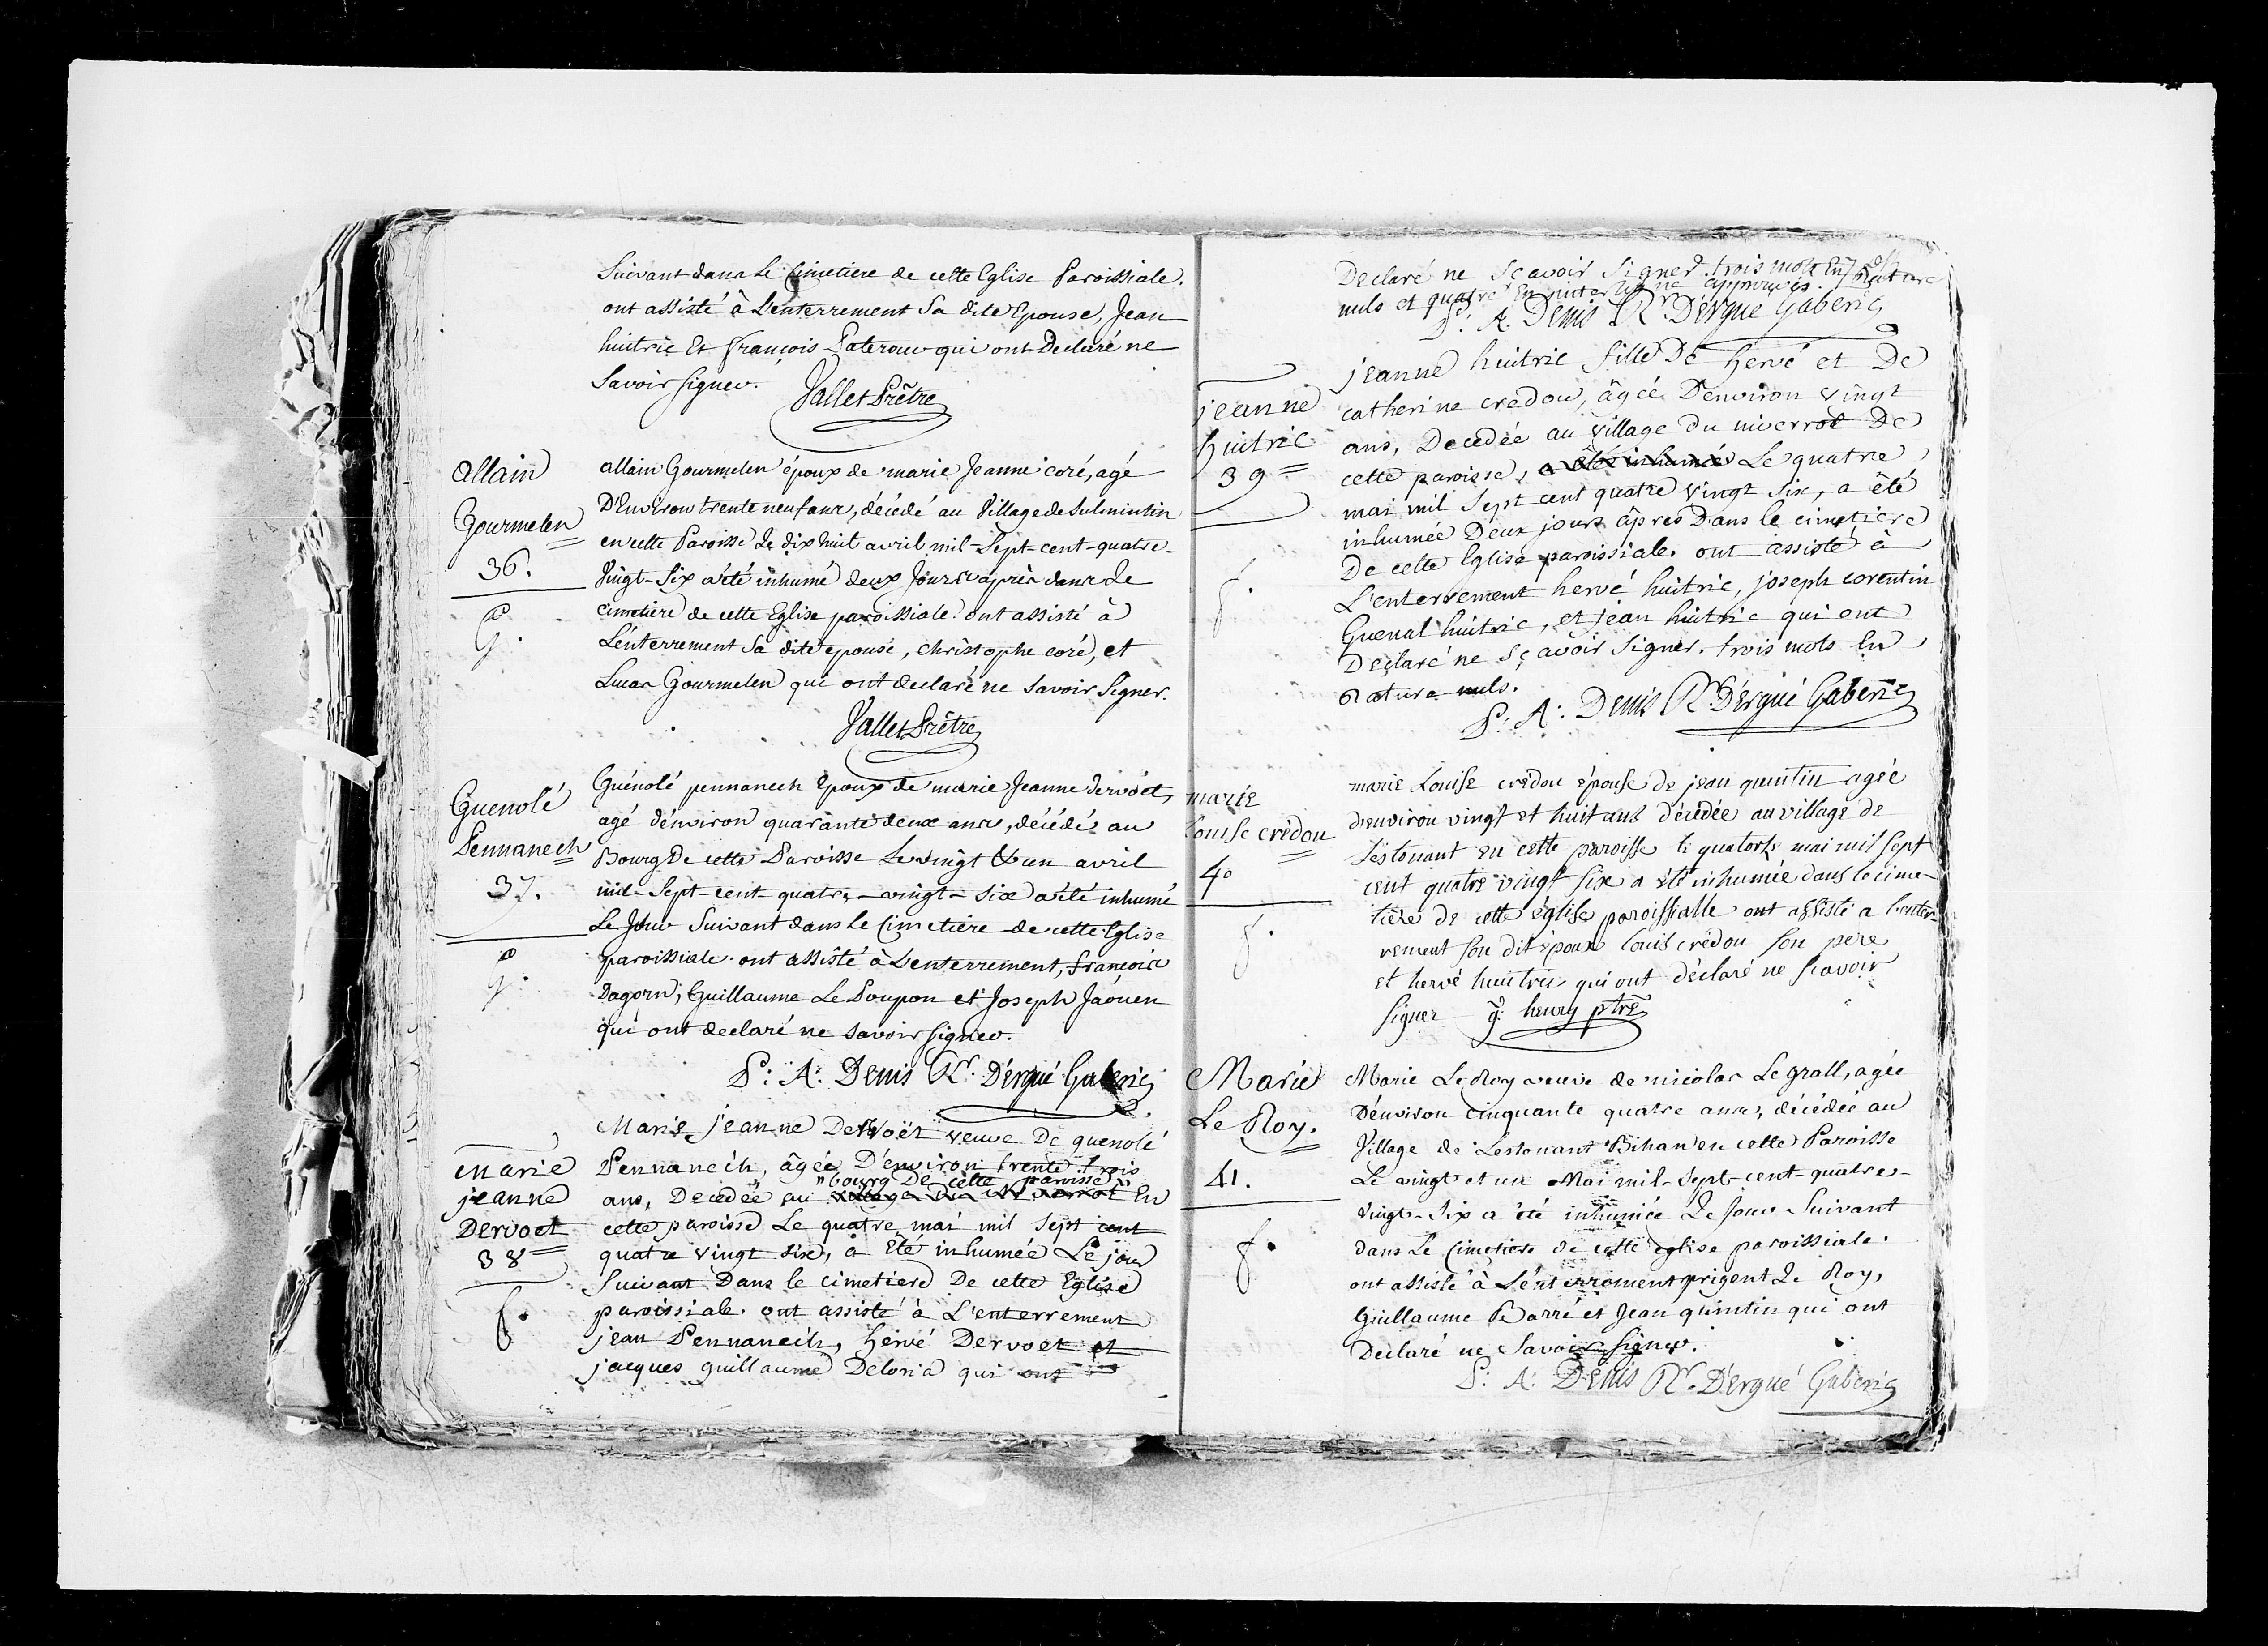 Suivant dans Le Cimetiere de cette Eglise Paroissiale.
ont assisté à L'enterrement Sa dite Epouse, Jean
huitric Et françois Paterour qui ont Declaré ne
Savoir signer.
Vallet Prêtre
Allain
Gourmelen
36.
G.
allain Gourmelen époux de marie Jeanne coré, agé
D'Environ trente neuf ans, décédé au Village de
en cette Paroisse Le dix huit avril mil-Sept-cent-quatre-
Vingt-Six a été inhumé deux Jours après dans Le
cimetière de cette Eglise paroissiale. ont assisté à
L'enterrement Sa dite epouse, christophe coré, et
Lucas Gourmelen qui ont declaré ne Savoir Signer.
Vallet Prêtre
Guenolé
Pennanech
37.
G.
Guénolé pennanech Epoux de marie Jeanne dervoët,
agé d'énviron quarante deux ans, décédé au
Bourg De cette Paroisse Le vingt & un avril
mil-Sept-cent-quatre-vingt-Six a été inhumé
Le Jour Suivant dans Le Cimetière de cette Eglise
paroissiale. ont assisté à L'enterrement, françois
Dagorn, Guillaume Le Poupon et Joseph Jaouen
qui ont declaré ne savoir signer.
P: A: Denis Rr. D'érgué Gaberic
marie
jeanne
Dervoet
38
f.
Marie jeanne Dervoët veuve De guenolé
Pennanech, âgée D'environ trente trois
"bourg De cette paroisse"
ans, Decedée au En
cette paroisse Le quatre mai mil Sept cent
quatre vingt Six, a été inhumée Le jour
Suivant Dans le cimetiere De cette Eglise
paroissiale. ont assisté à L'enterrement
jean Pennanech, hervé Dervoet et
jacques guillaume Deloria qui ont
Declaré ne Sçavoir Signer. trois mots En Rature
nuls et quatre En interligne approuvés.
P: A. Denis Rr D'érgué Gaberic
jeanne
huitric
39
f.
jeanne huitric fille De hervé et De
catherine credou, âgée D'environ vingt
ans, Decedée au village du niverrot De
cette paroisse, a été inhumée Le quatre
mai mil Sept cent quatre vingt Six, a été
inhumée Deux jours âpres Dans le cimetiere
De cette Eglise paroissiale. ont assisté à
L'enterrement hervé huitric, joseph corentin
Guenal huitric, et jean huitric qui ont
Declaré ne Sçavoir Signer. trois mots En
rature nuls.
P: A: Denis Rr D'érgué Gaberic
marie
Louise crédou
40
f.
marie Louise crédou épouse de jean quintin agée
d'environ vingt et huit ans décédée au village de
Lestonant en cette paroisse le quatorze mai mil sept
cent quatre vingt six a été inhumée dans le cime-
tière de cette église paroissialle ont assisté a l'enter-
rement son dit époux louis crédou son pere
et hervé huitric qui ont déclaré ne scavoir
signer g. henry ptre
Marie
Le Roy.
41.
f.
Marie Le Roy veuve de nicolas Le grall, agée
D'énviron cinquante quatre ans, décédée au
Village de Lestonant Bihan en cette Paroisse
Le vingt et un Mai mil-Sept-cent-quatre-
Vingt-Six a été inhumée Le Jour Suivant
dans Le Cimetiere de cette église paroissiale.
ont assisté à L'énterrement prigent Le Roy,
Guillaume Barré et Jean quintin qui ont
Declaré ne Savoir signer.
P: A: Denis Rr. D'érgué Gaberic